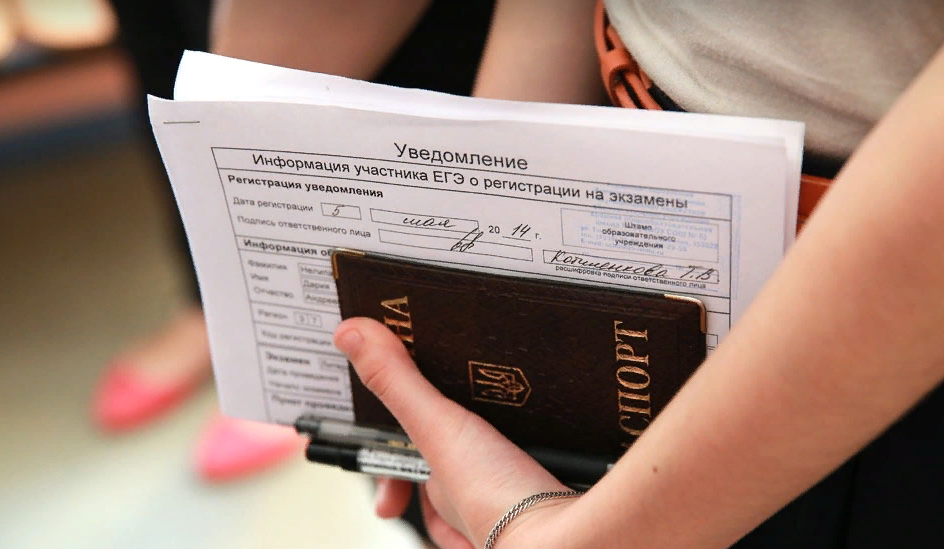 Уведомление
Информация участника ЕГЭ о регистрации на экзамены
Регистрация уведомления
Дата регистрации 5 мая 20 14 г.
Подпись ответственного лица
Штамп
образовательного
учреждения
расшифровка подписи ответственного лица
Информация об
Фамилия
Имя Дарья
Отчество Андрее
Регион
Код регистрации
Экзамен
Дата проведения
Начало экзамена
Пункт
НА
СПОРТ